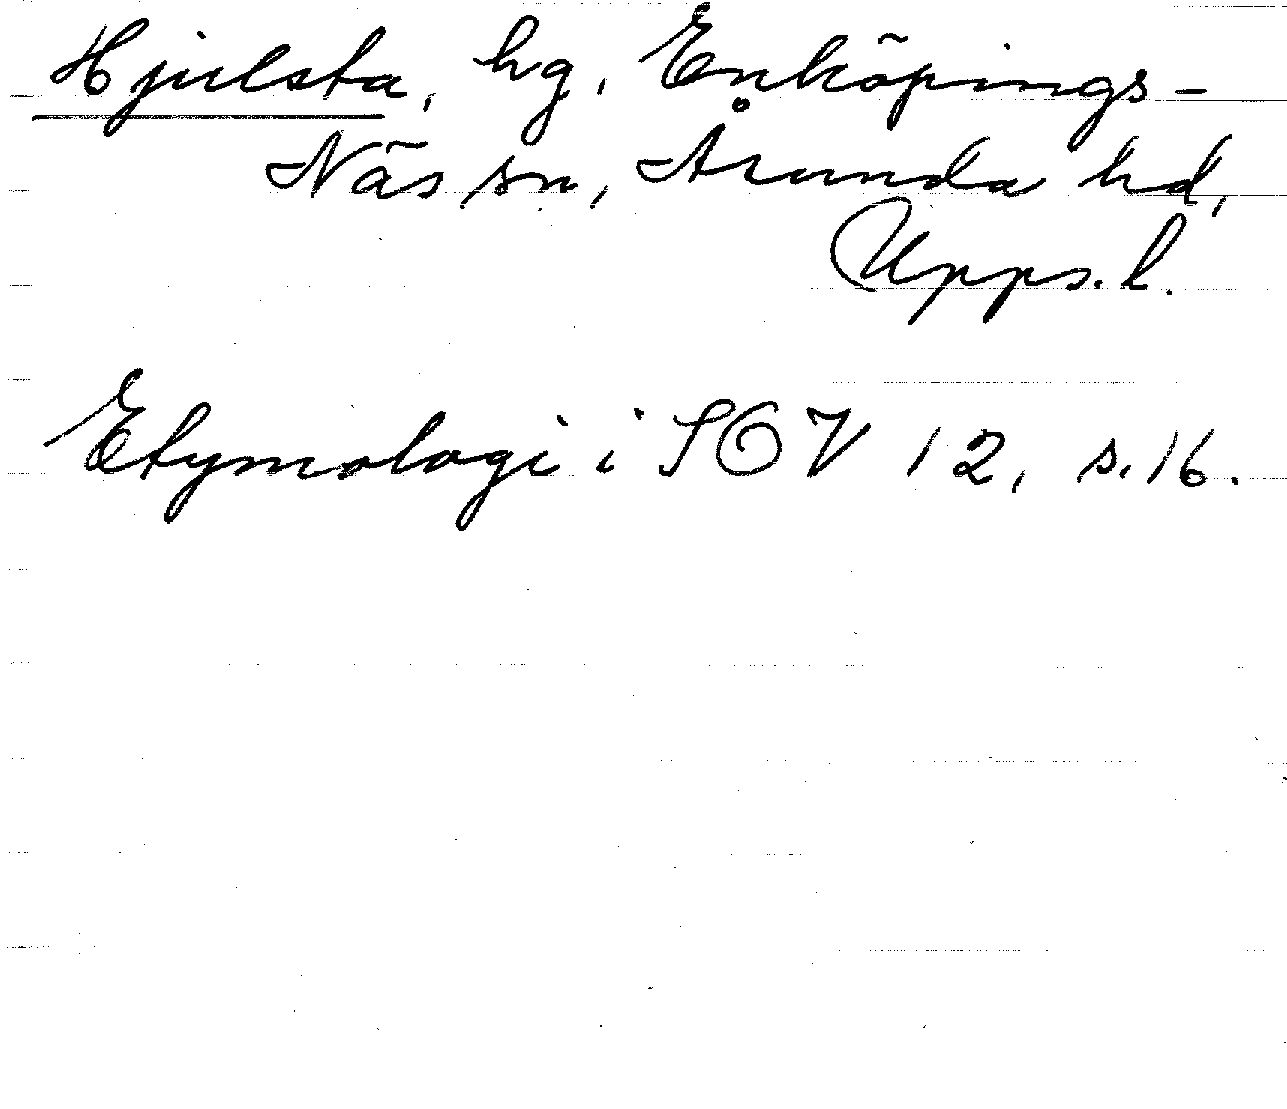 Hjulsta, hg, Enköpings-
Näs sn, Årunda hd,
Upps. l.
Etymologi i SOV 12, s. 16.